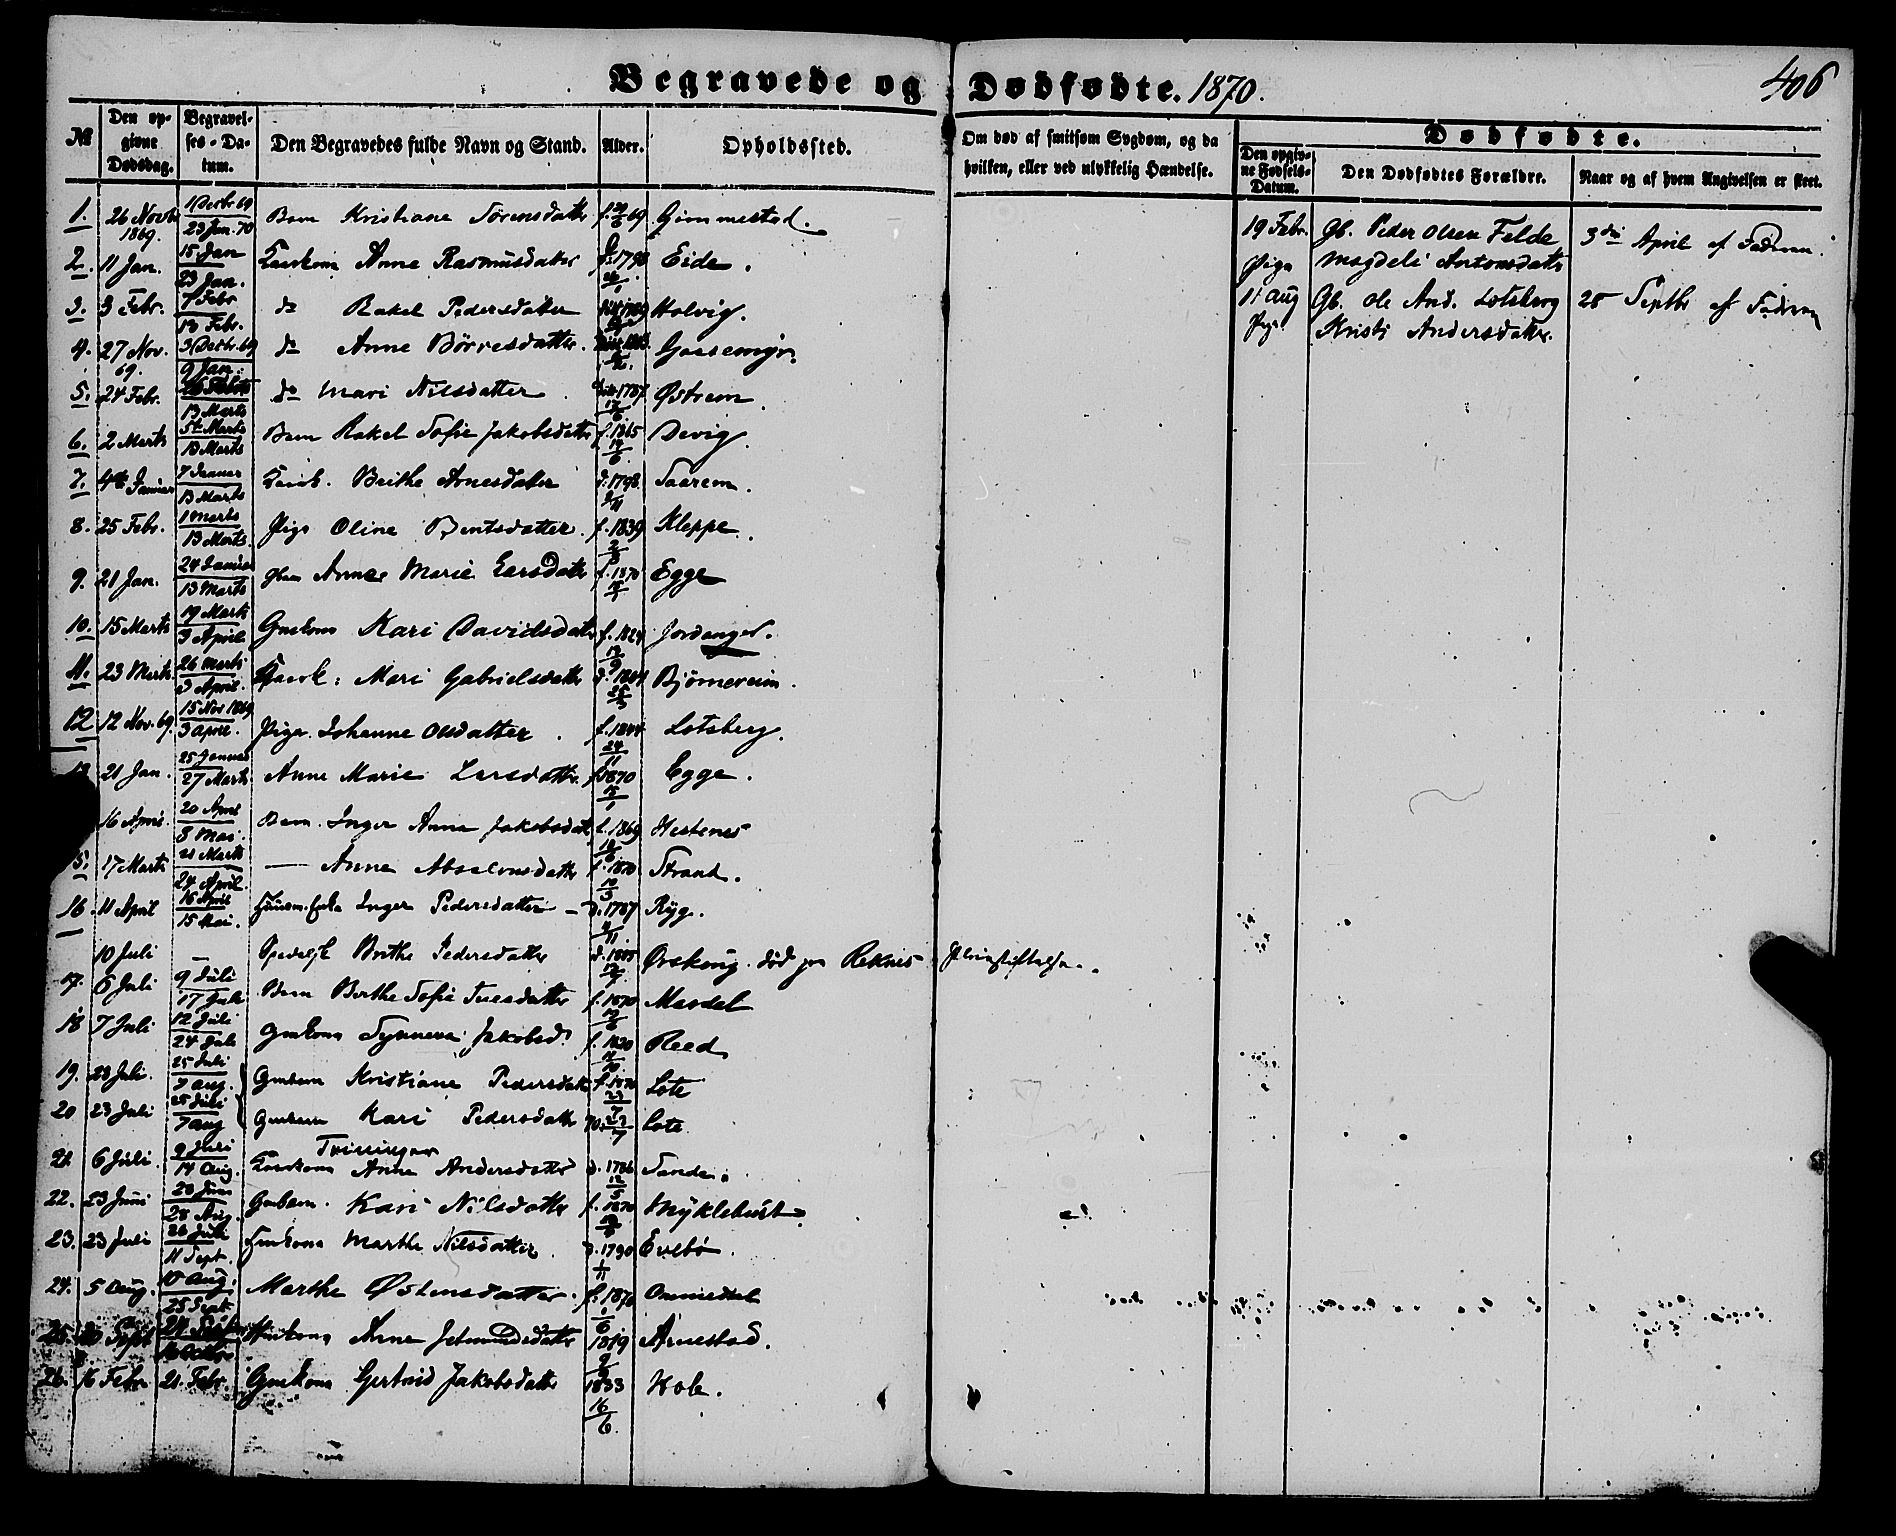 Begravede og Dødfødte. 1870. 406
№ Den opgivne Dødsdag. Begravelses-Datum. Den Begravedes fulde Navn og Stand. Alder. Opholdssted. Om død af smitsom Sygdom, og da hvilken, eller ved ulykkelig Hændelse.
Dødfødte.
Den opgivne Fødsels-Datum. Den Dødfødtes Forældre. Naar og af hvem Angivelsen er skeet.
1. 26 Novbr 1869. 1 Decbr 69 23 Jan. 70 Barn Kristiane Sørensdatter Gimmestad.
2. 11 Jan. 15 Jan 23 Jan. Anne Rasmusdatter Eide.
3. 3 Febr. 7 Febr 13 Febr. do Rakel Pedersdatter Holvig.
4. 27 Nov. 69. 3 Decbr. 69 9 Jan. do Anne Børresdatter.
5. 24 Febr. 13 Marts do Mari Nilsdatter Østrem.
6. 2 Marts 5te Marts 13 Marts Barn Rakel Sofie Jakobsdatter f. 1865 Devig.
7. 4de Januar 7 Januar 13 Marts Brithe Arnesdatter d. 1798 Saarem.
8. 25 Febr. 1 Marts 13 Marts. Pige Oline Bentsdatter. f. 1839 2 Kleppe.
9. 21 Jan. 24 Januar 13 Marts Anne Marie Larsdatter f. 1870 Egge
10. 15 Marts 19 Marts 3 April Gaardkona Kari Davidsdatter f. 1824 13/9 Jordanger.
11. 23 Marts. 26 Marts 3 April. Mari Gabrielsdatter 25/5 Bjørnereim.
12 12 Nov. 69. 15 Nov 1869 3 April. Pige. Johanne Olsdatter f. 1844 24/11 Lotsberg.
13 21 Jan. 25 Januar 27 Marts Anne Marie Larsdatter. f. 1870 Egge.
16 April. 20 April 8 Mai. Barn. Inger Anna Jakobsdatter f. 1869 Hestenes
15. 17 Marts 21 Marts 24 April. — Anne Absalonsdatter f. 1870 Strand.
16. 11 April 16 April 15 Mai. Inger Pedersdatter – d. 1787 Ryg.
10 Juli — Brithe Pedersdatter Ørskoug. død paa Reknes Pleiestiftelse.
17. 6 Juli 9 Juli 17 Juli Barn Berthe Sofie f. 1870 Mardal
18 7 Juli 12 Juli 24 Juli Synneva Jakobsd. Reed
19. 23 Juli. 25 Juli 7 Aug. Kristiane Pedersdatter f. 1870 23/7 Lote
20 23 Juli 25 Juli 7 Aug Kari Pedersdatter 70. 23/7 Lote
Tvillinger
21. 6 Juli. 9 Juli 14 Aug. Anne Andersdatter d. 1786 12/5 Sande.
22. 23 Juni 28 Aug. Kari Nilsdatter f. 1870 Myklebust.
23. 23 Juli 26 Juli 11 Sept. Marthe Nilsdatter. d. 1790 1/11 Evebø.
24. 5 Aug. 10 Aug. 25 Sept Marthe Østensdatter. f. 1870 1/6 Ommedal
25. 20 Sept Anne Jetmundsdatter 1819 Arnestad.
26. 16 Febr. 21. Febr. Gertrud Jakobsdatter 1833 16/6. Hole.
19 Febr. Pige Gb. Peder Olsen Felde Magdeli Antonsdatter 3die April af Faderen.
11 Aug Pige Gb. Ole And. Lotsberg Kristi Andersdatter. 25 Septbr af Faderen